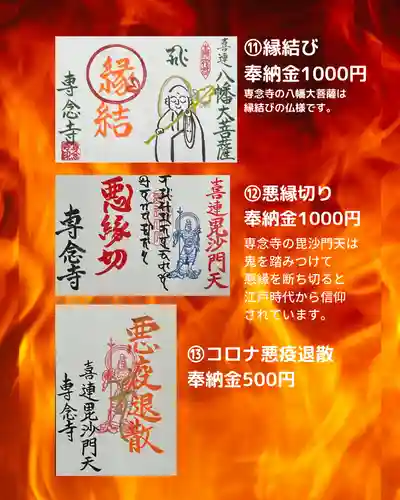 ⑪縁結び
奉納金1000円
専念寺の八幡大菩薩は
縁結びの仏様です。
喜連
八幡大菩薩
縁結
専念寺
⑫悪縁切り
奉納金1000円
専念寺の毘沙門天は
鬼を踏みつけて
悪縁を断ち切ると
江戸時代から信仰
されています。
喜連毘沙門天
悪縁切
専念寺
⑬コロナ悪疫退散
奉納金500円
悪疫退散
喜連毘沙門天
専念寺